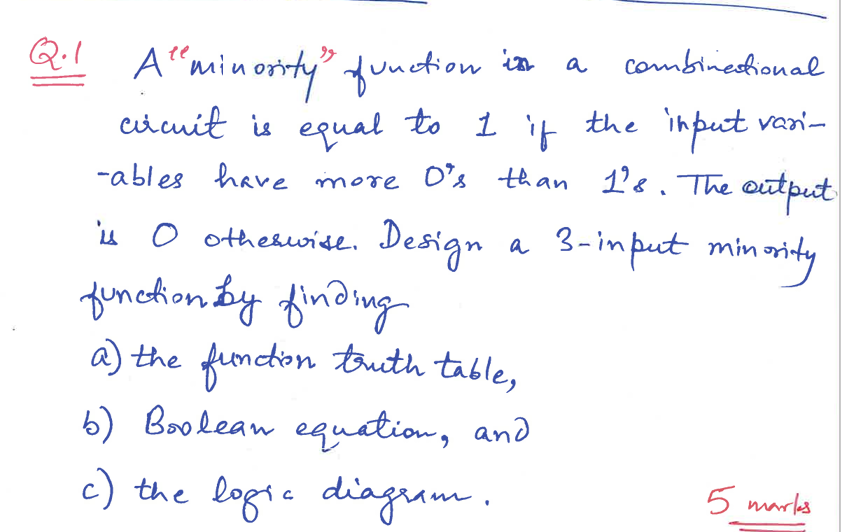 Q.1 A "minority" function in a combinational
circuit is equal to 1 if the input vari-
-ables have more 0's than 1's. The output
is 0 otherwise. Design a 3-input minority
function by finding
a) the function truth table,
b) Boolean equation, and
c) the logic diagram.
5 marks